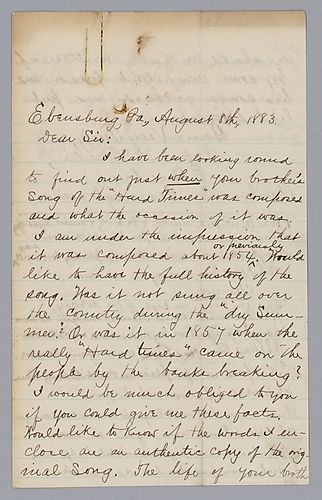 Ebensburg, Pa, August 8th, 1883.
Dear Sir:
I have been looking round
to find out just when your brother's
Song of the "Hard Times" was composed
and what the occasion of it was.
I am under the impression that
or previously
it was composed about 1854. Would
like to have the full history of the
song. Was it not sung all over
the country during the "dry Sum-
mer?" Or was it in 1857 when the
really "Hard times" came on the
people by the banks breaking?
I would be much obliged to you
if you could give me these facts.
Would like to know if the words I en-
close are an authentic copy of the orig-
inal Song. The life of your broth